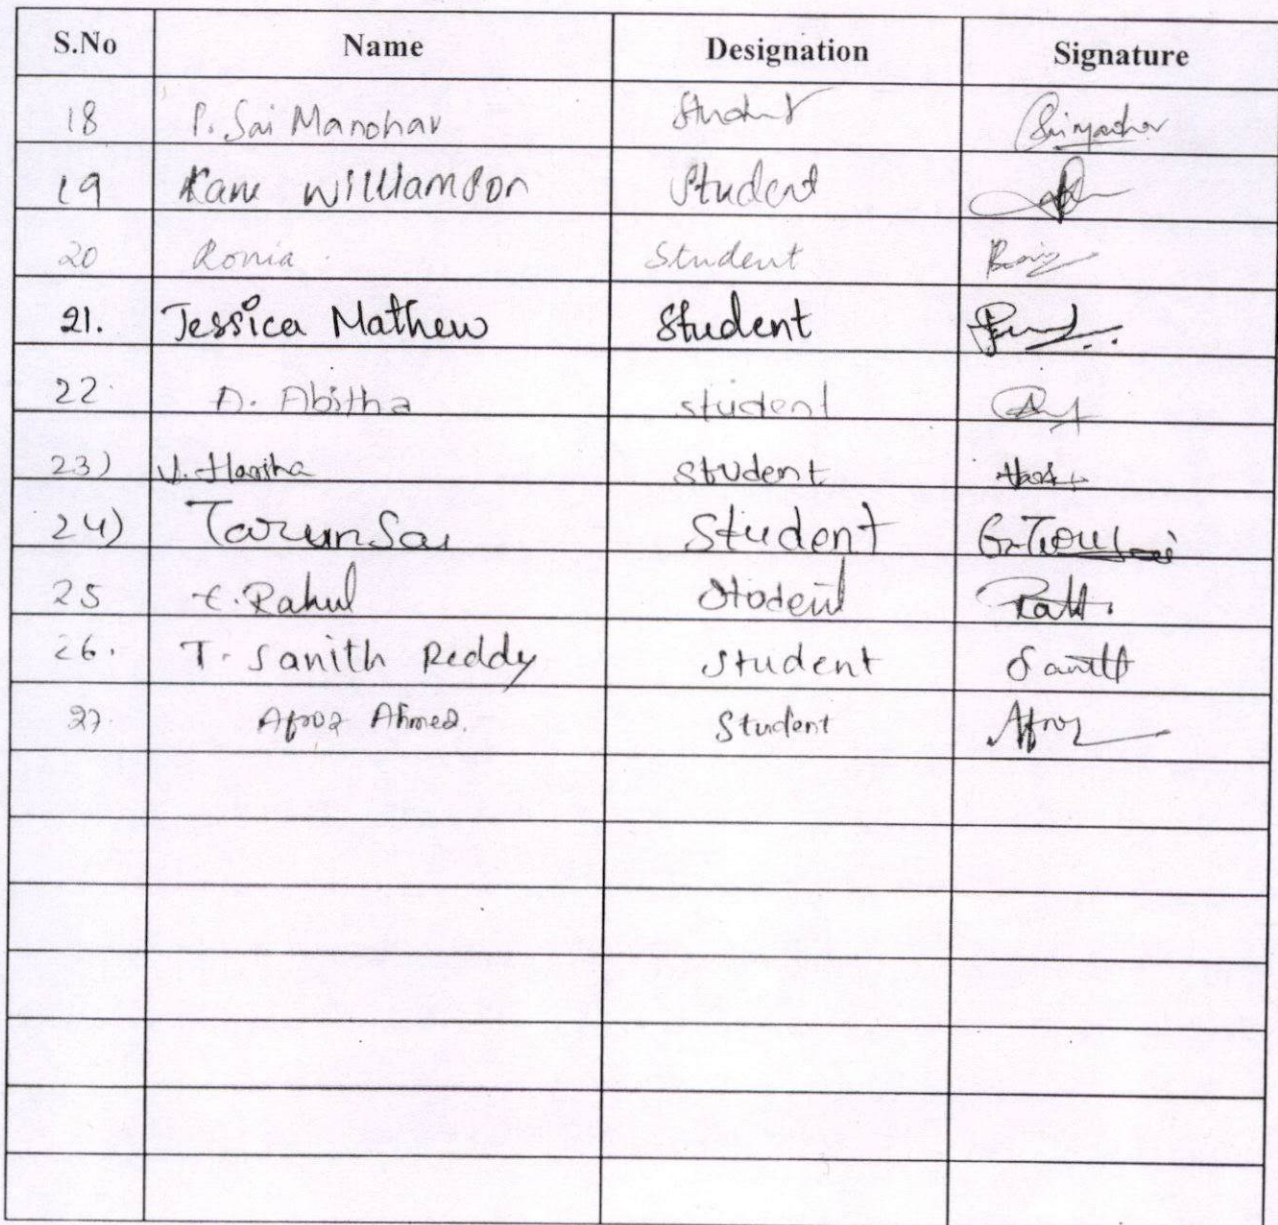 S.No Name Designation Signature
18 P. Sai Manohar Student
19 Kane Williamson Student
20 Ronia. Student
21. Jessica Mathew Student
22. A. Abitha student
23) V. Harsha student
24) Tarun Sai Student G. Tarun Sai
25 E. Rahul Student
26. T. Sanith Reddy Student Sanith
27. Afroz Ahmed. Student Afroz